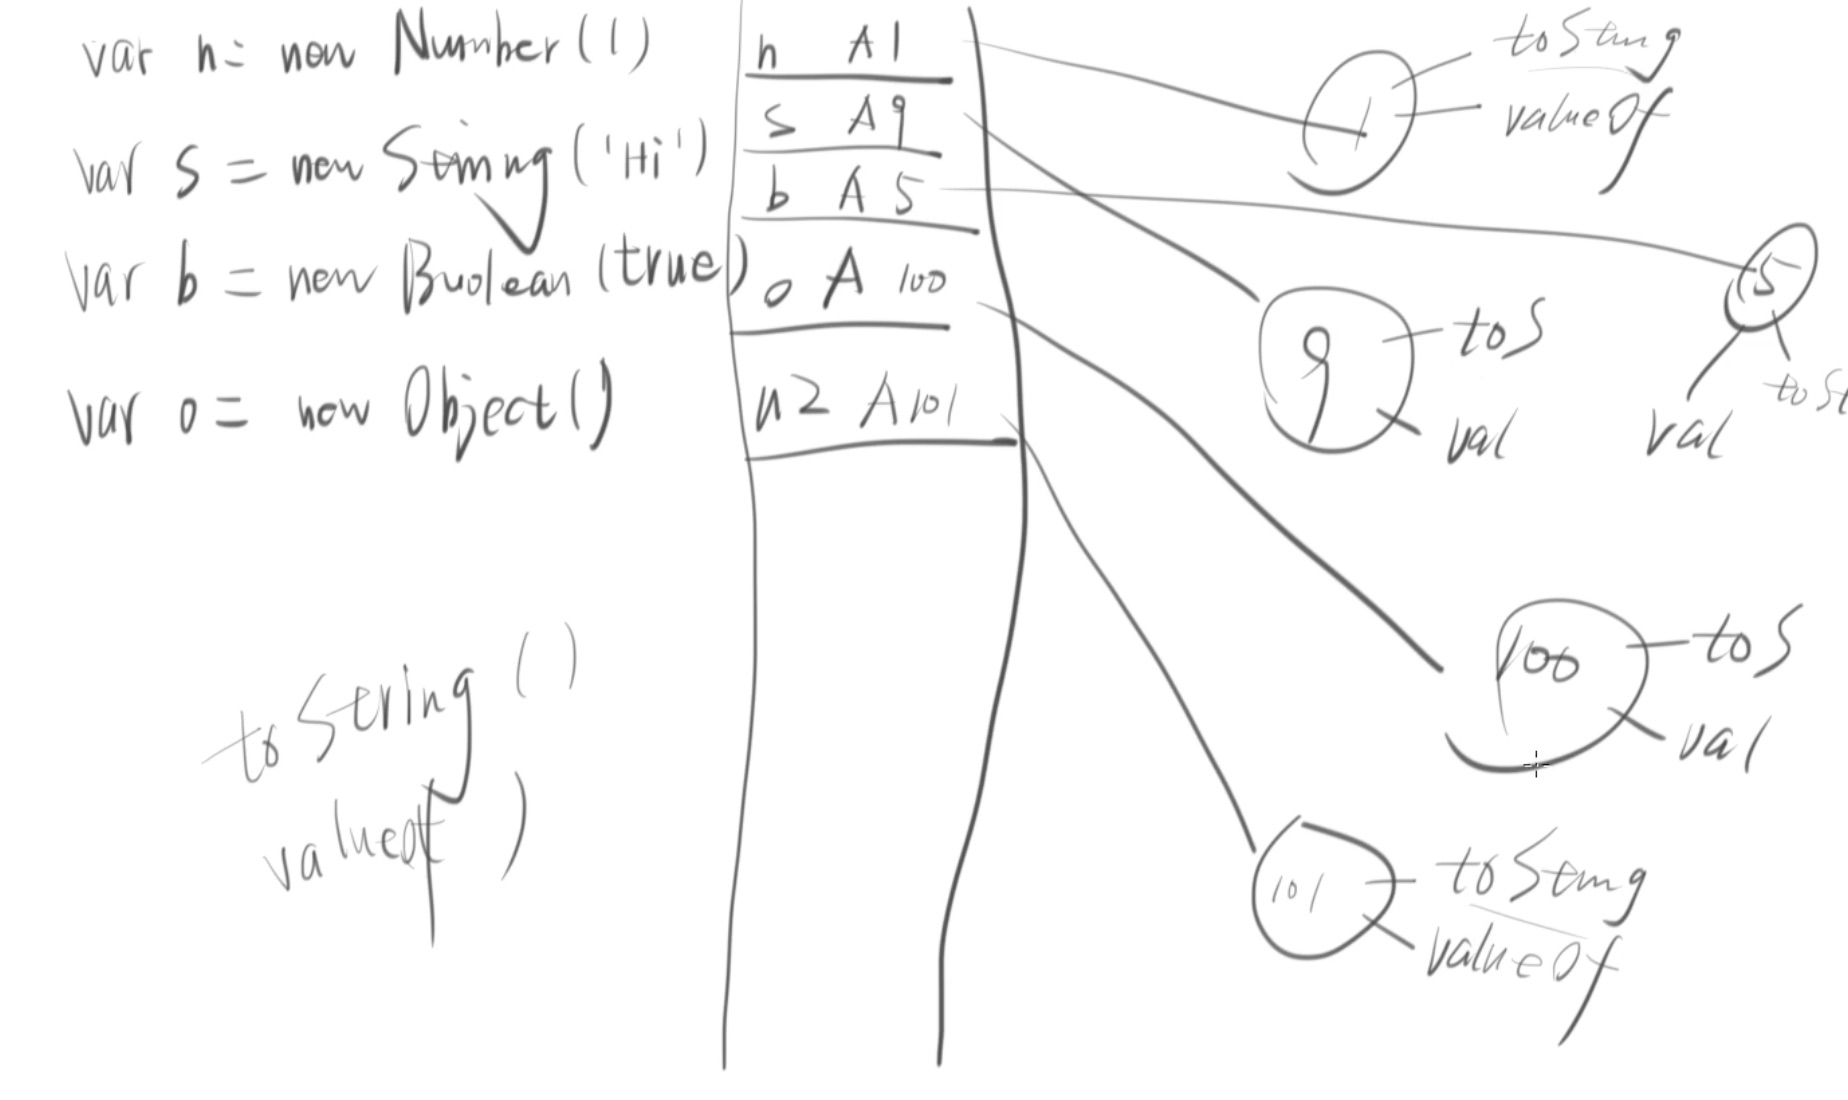 var n = new Number(1)
var s = new String('Hi')
var b = new Boolean(true)
var o = new Object()
toString()
valueOf )
n A1
s A9
b A5
o A100
n2 A101
1
toString
valueOf
9
toS
val
5
val
toSt
100
toS
val
101
toString
valueOf